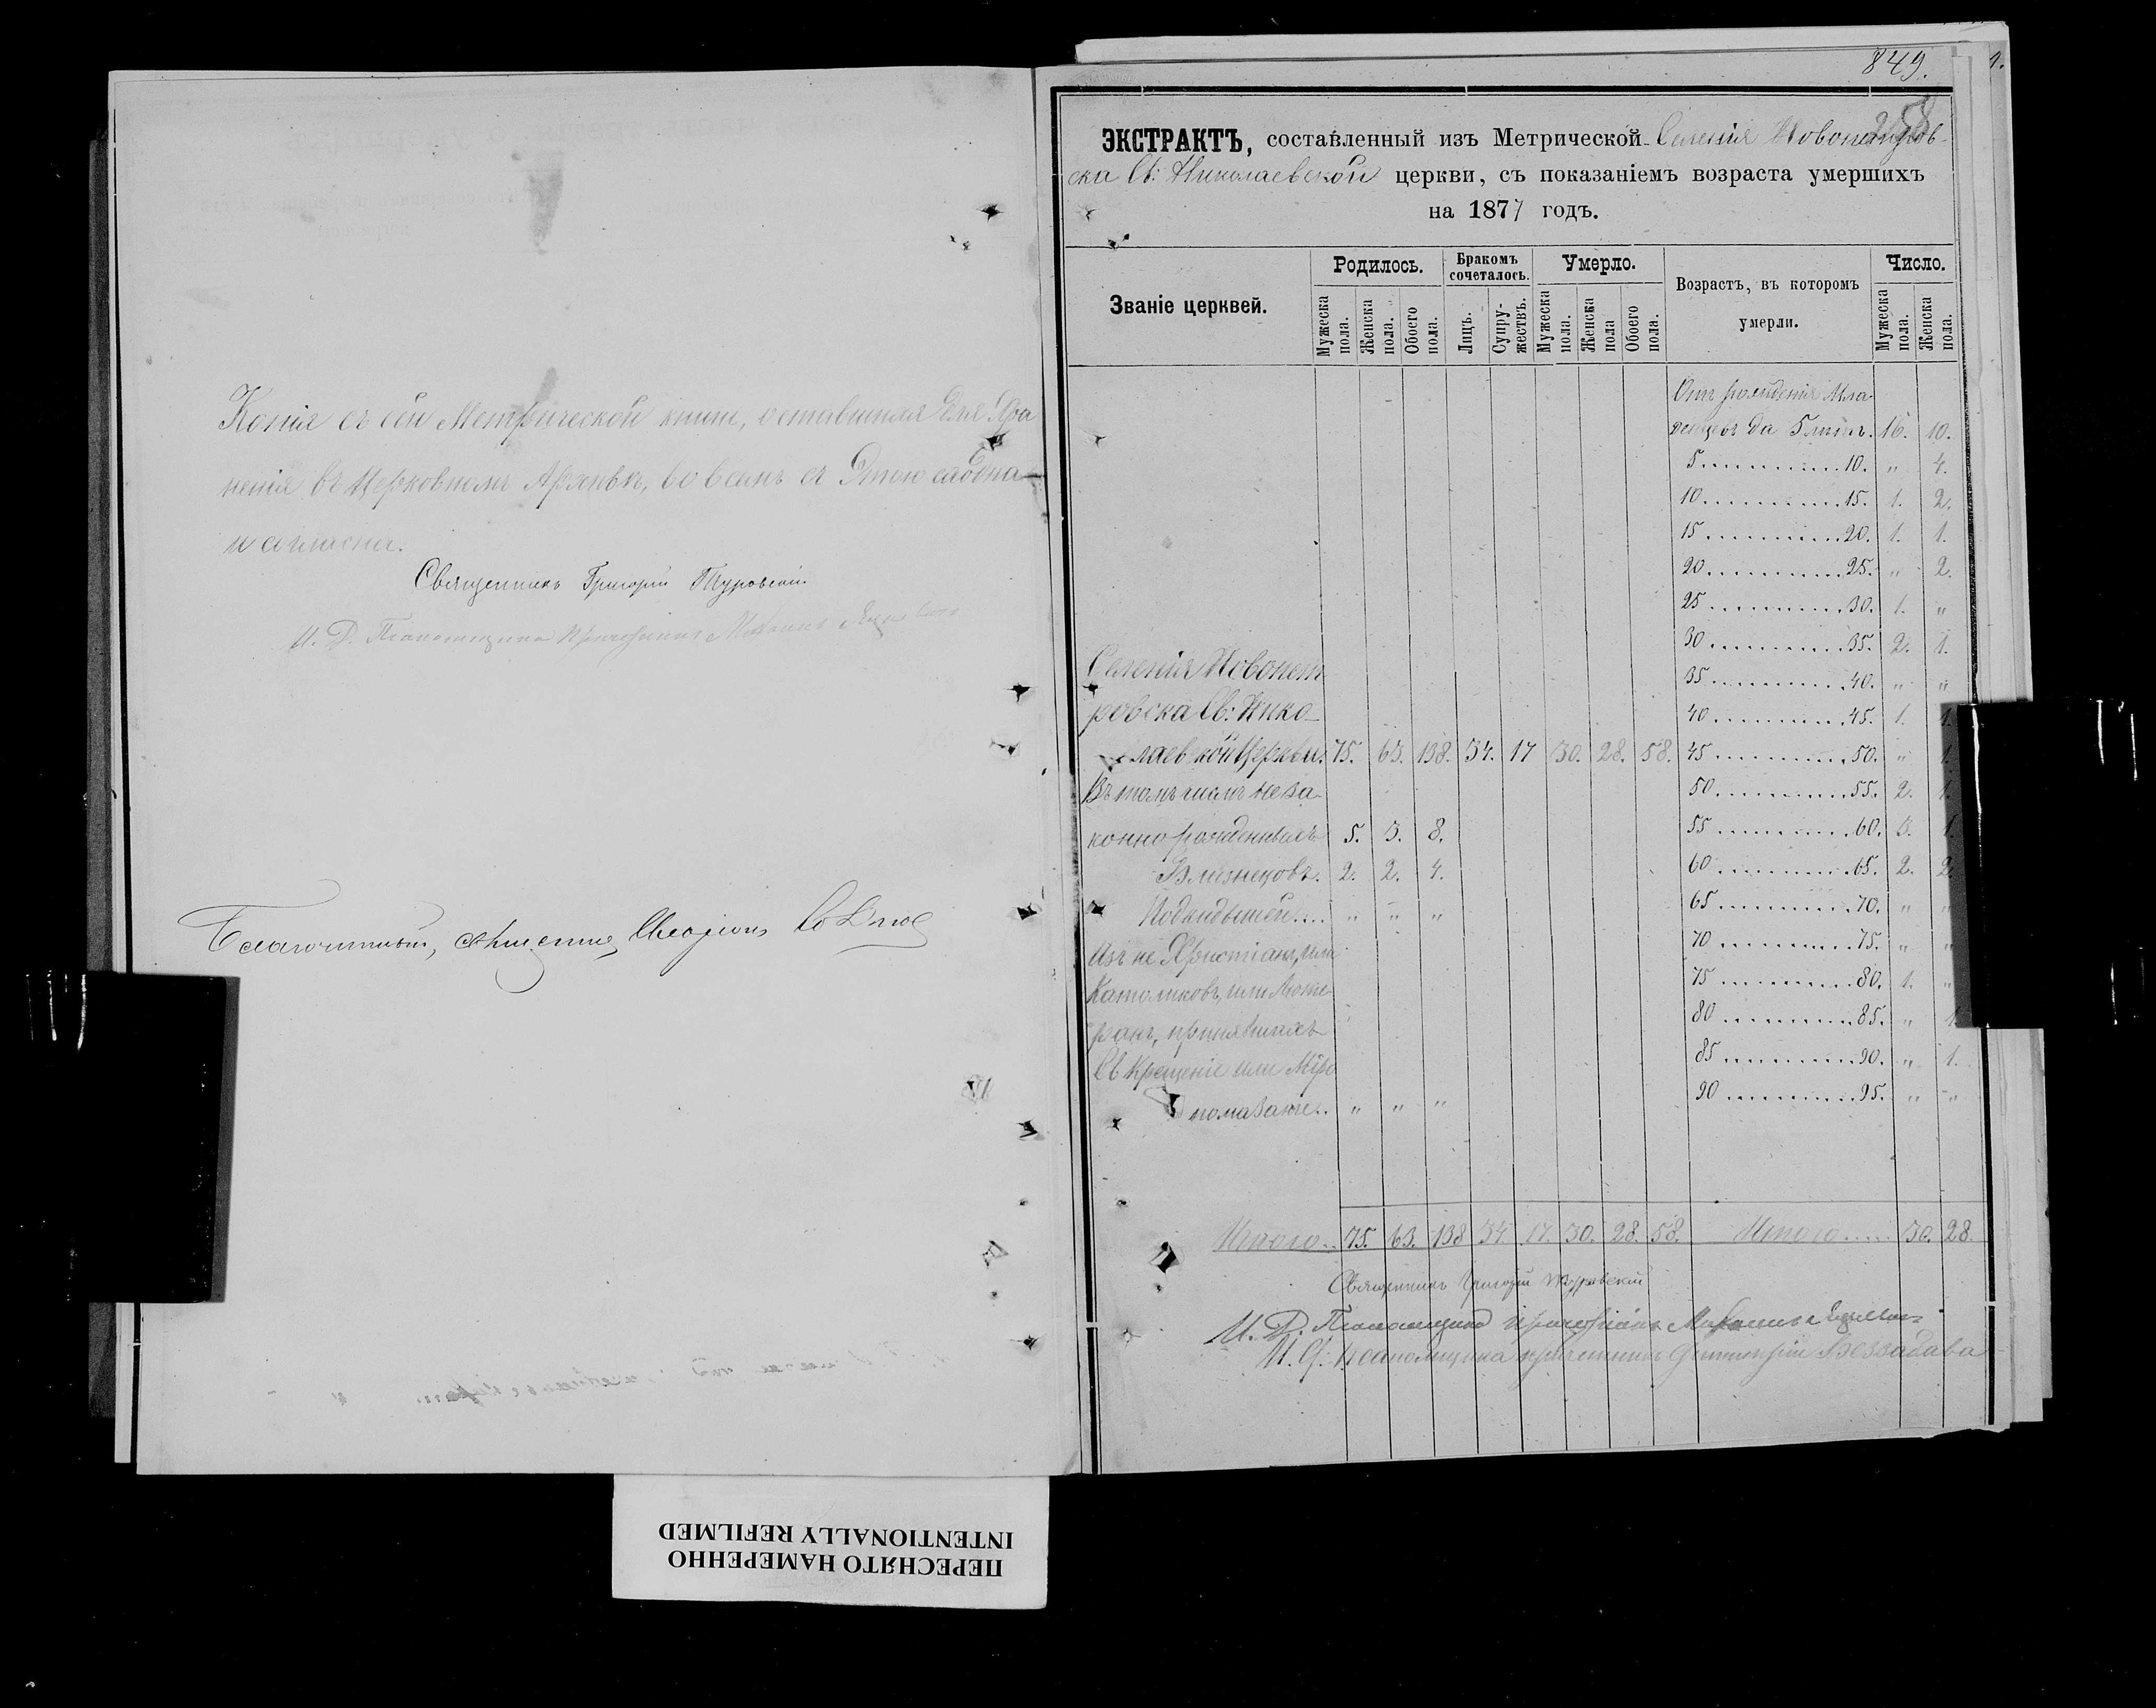 Копія съ сей Метрической книги, оставшаяся для Хра
ненія въ Церковномъ Архивѣ, во всемъ съ Этою сходна
и согласна.
Священникъ Григорій Туровскій
И. Д. Псаломщика Причетникъ Михаилъ
Благочинный, священникъ
849.
258
ЭКСТРАКТЪ, составленный изъ Метрической Селенія Новопетров-
ска Св: Николаевской церкви, съ показаніемъ возраста умершихъ
на 1877 годъ.
Званіе церквей.
Родилось.
Бракомъ сочеталось.
Умерло.
Возрастъ, въ которомъ умерли.
Число.
Мужеска пола.
Женска пола.
Обоего пола.
Лицъ.
Супру-жествъ.
Мужеска пола.
Женска пола
Обоего пола.
Мужеска пола.
Женска пола.
Отъ рожденія Мла
денцевъ до 5 лѣтъ. 16. 10.
5............10. " 4.
10............15. 1. 2.
15............20. 1. 1.
20............25. " 2.
25............30. 1. "
30............35. 2. 1.
35............40. " "
40............45. 1. 1.
45............50. " 1.
50............55. 2. 1.
55............60. 3. 1.
60............65. 2. 2.
65............70. " "
70............75. " "
75............80. 1. "
80............85. " 1.
85............90. " 1.
90............95. " "
Селенія Новопет
ровска Св: Нико-
лаевской Церкви. 75. 63. 138. 34. 17 30. 28. 58.
Въ томъ числѣ неза-
коннорожденныхъ 5. 3. 8.
Близнецовъ. 2. 2. 4.
Подкидышей.... " " "
Изъ не Христіанъ, или
Католиковъ, или Люте
ранъ, принявшихъ
Св Крещеніе или Мѵро
помазаніе.. " " "
Итого.. 75. 63. 138 34. 17. 30. 28. 58. Итого..... 30. 28.
Священникъ Григорій Туровскій
И. Д. Псаломщика Причетникъ Михаилъ
И. Д. Псаломщика причетникъ Димитрій
ПЕРЕСНЯТО НАМЕРЕННО
INTENTIONALLY REFILMED